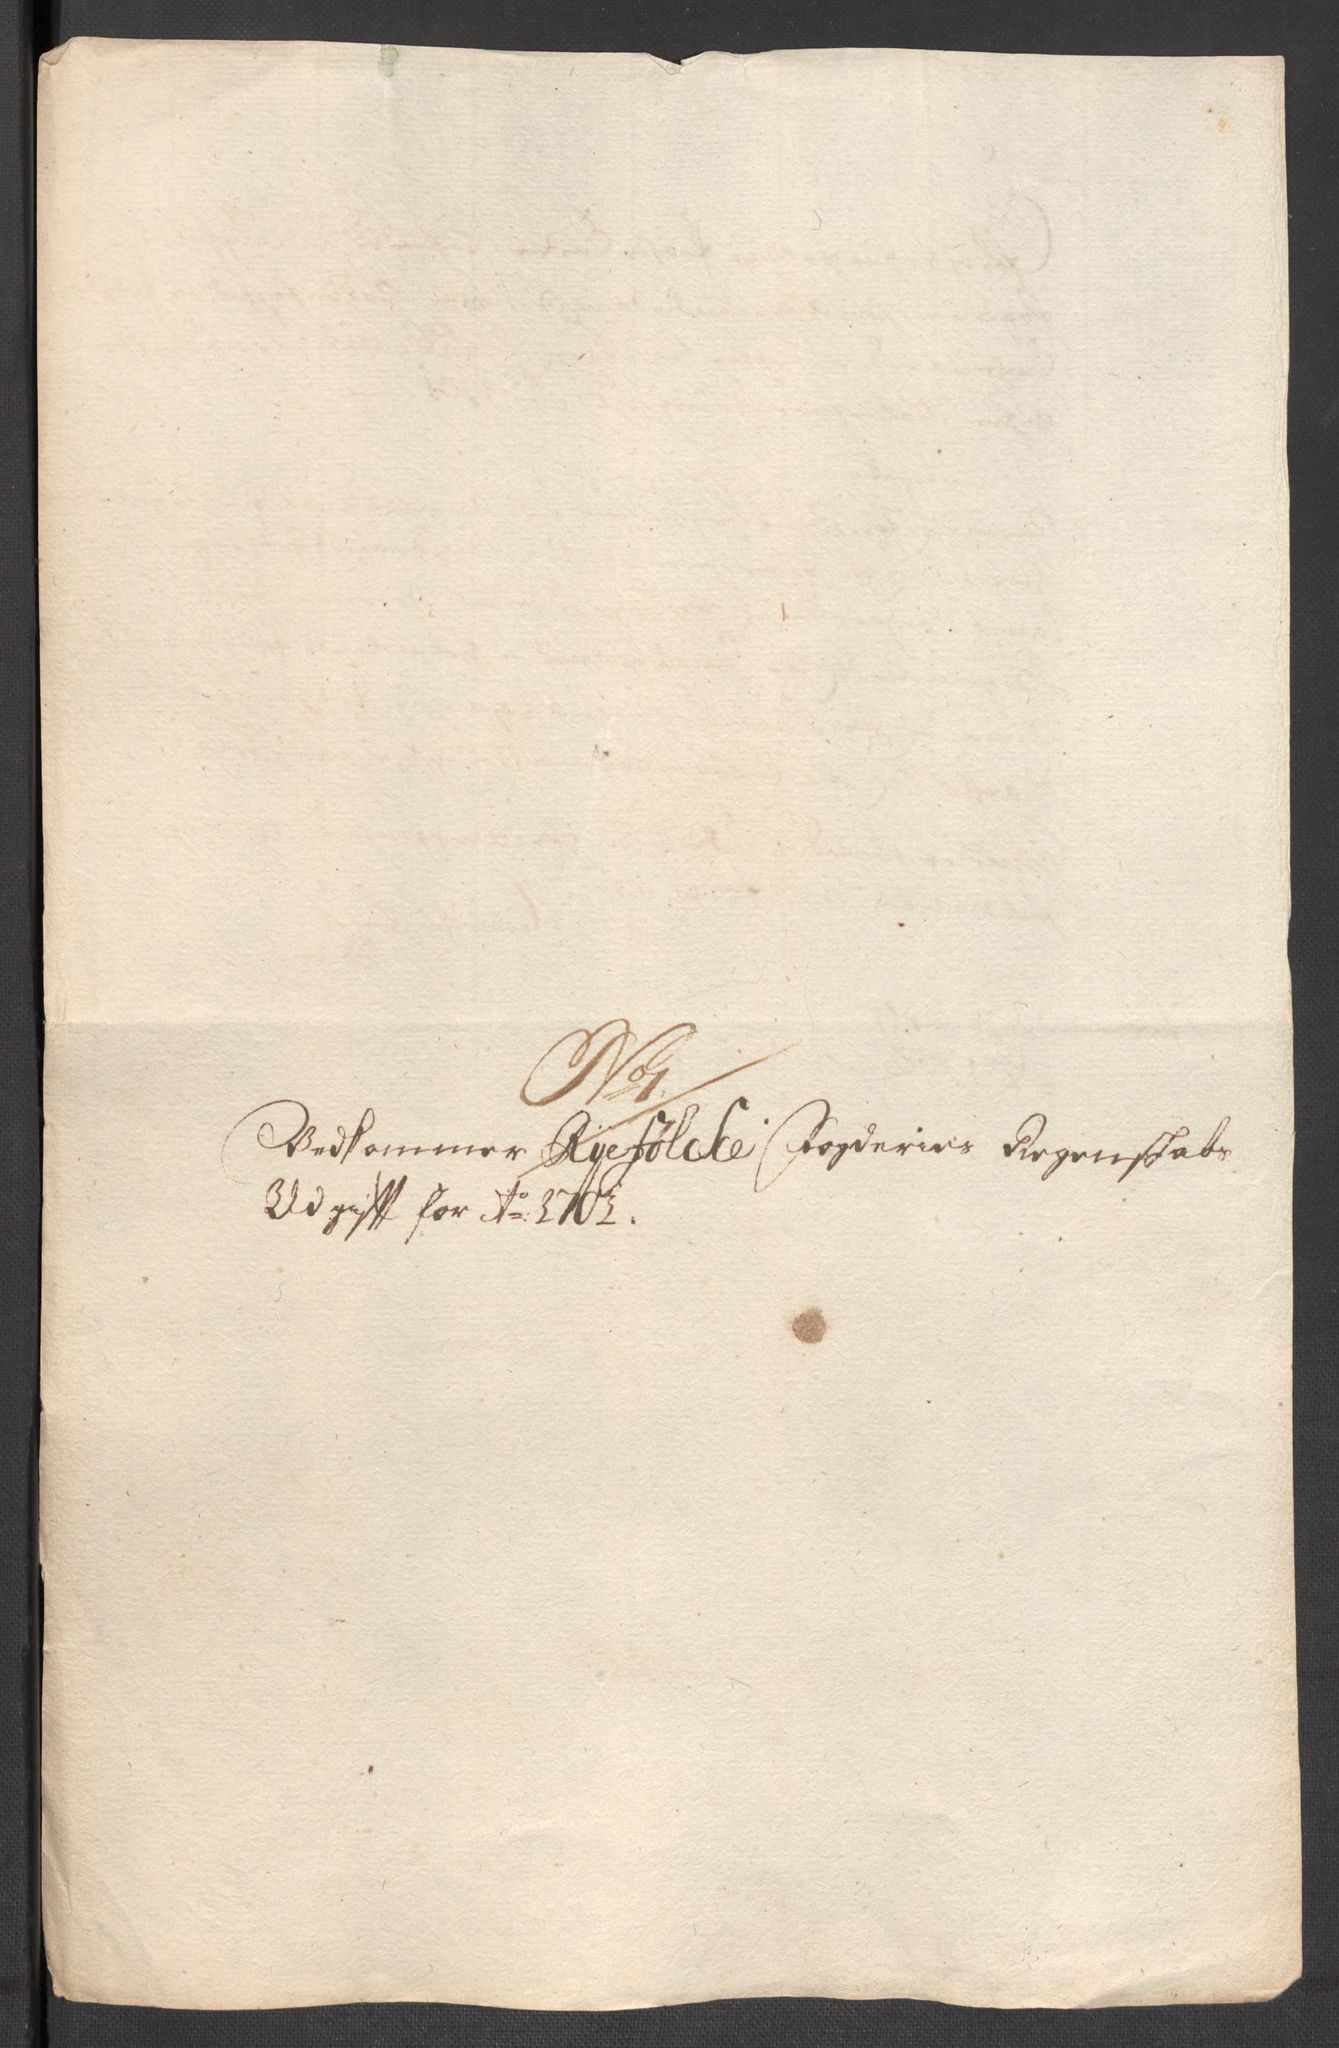 No 1.
Vedkommer Ryefölcke Fogderies Regenskabs
Udgifft for Ao: 1701.